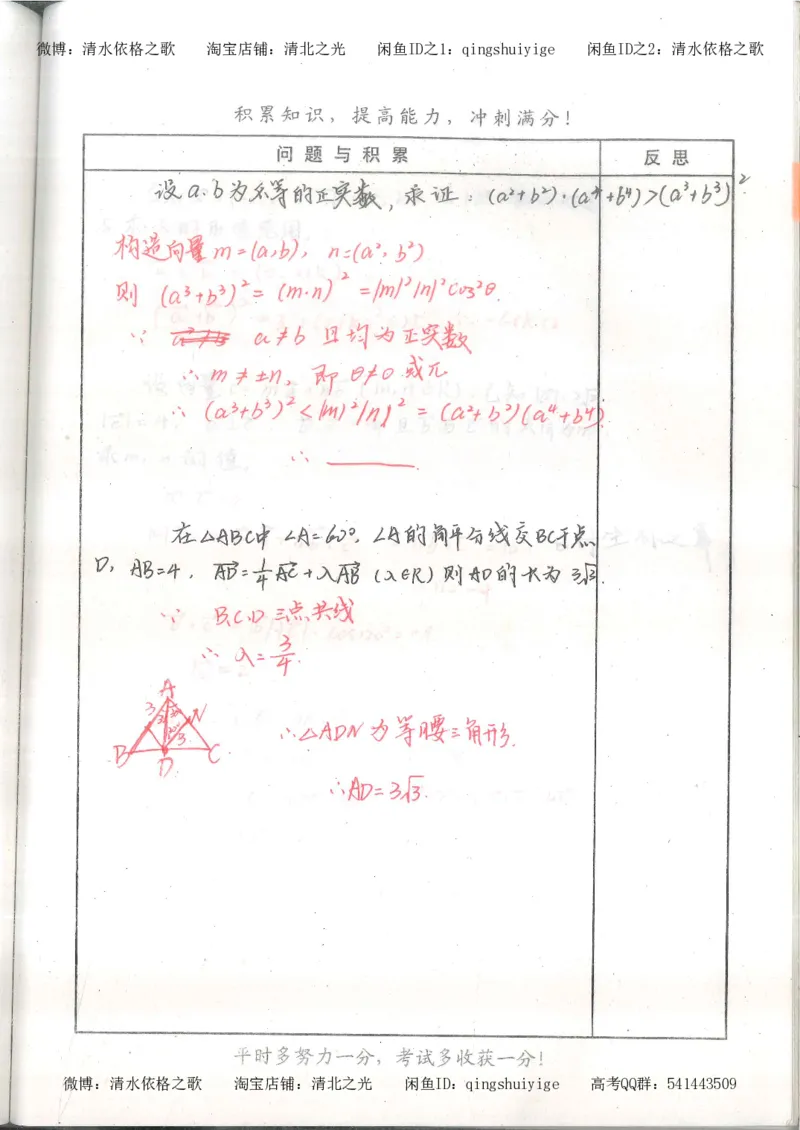 微博：清水依格之歌 淘宝店铺：清北之光 闲鱼ID之1：qingshuiyige 闲鱼ID之2：清水依格之歌
积累知识，提高能力，冲刺满分！
问题与积累 反思
设a.b为不等的正实数，求证：(a²+b²)·(a⁴+b⁴)>(a³+b³)²
构造向量m=(a,b), n=(a²,b²)
则 (a³+b³)²=(m·n)²=|m|²|n|²cos²θ.
∵ a≠b 且均为正实数
∴ m≠±n, 即 θ≠0 或π
∴ (a³+b³)²<|m|²|n|²=(a²+b²)(a⁴+b⁴).
∴ ______.
在△ABC中 ∠A=60°, ∠A的角平分线交BC于点
D, AB=4, AD=¼AC+λAB (λ∈R) 则AD的长为 3√3.
∵ B.C.D 三点共线
∴ λ=3/4.
A
3 N
3
B D C
∴△ADN为等腰三角形.
∴AD=3√3.
平时多努力一分，考试多收获一分！
微博：清水依格之歌 淘宝店铺：清北之光 闲鱼ID：qingshuiyige 高考QQ群：541443509